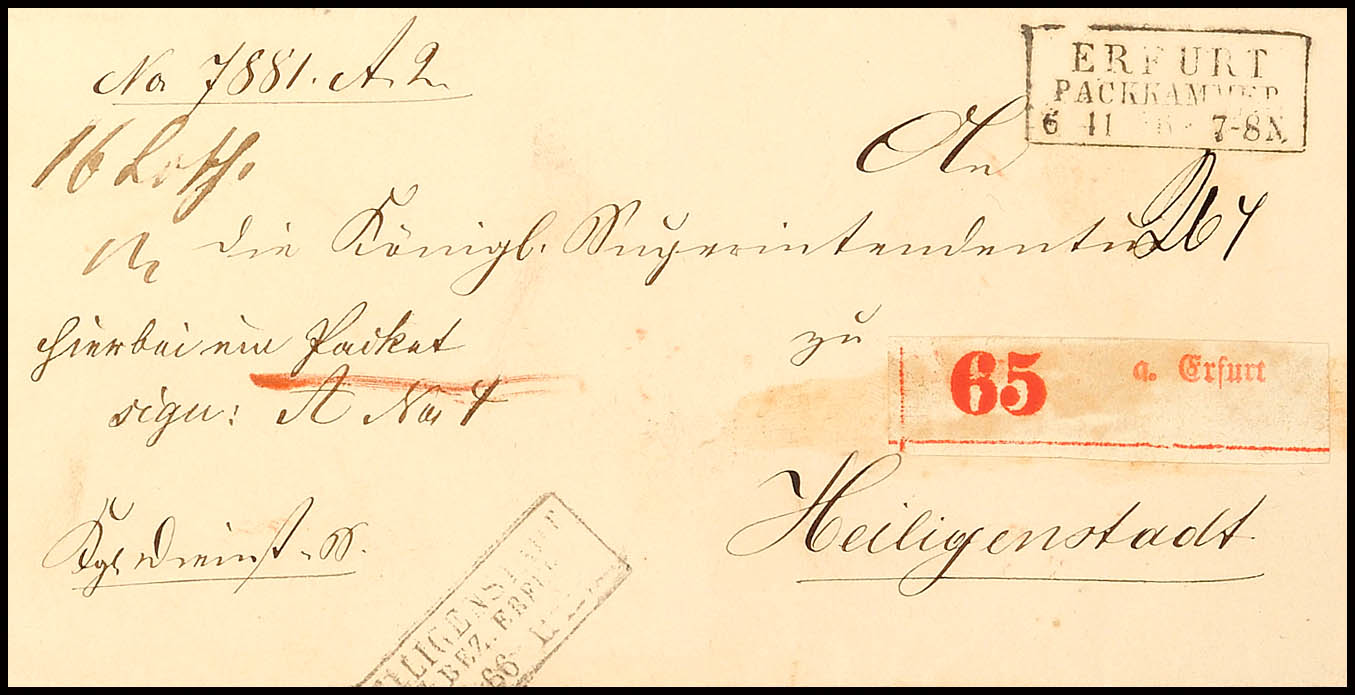 No 7881. A. 2.
ERFURT
PACKKAMMER
6 11 7-8N.
16 Loth.
An
die Königl. Superintendentur
hierbei ein Packet
sign: A No 4
zu
65 a. Erfurt
Heiligenstadt
Kgl. Dienst-S.
HEILIGENSTADT
BEZ. ERFURT
66